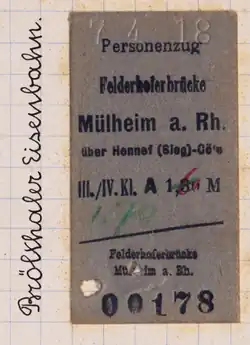 Brölthaler Eisenbahn.
7 4 18
Personenzug
Felderhoferbrücke
Mülheim a. Rh.
über Hennef (Sieg)-Cö'n
III./IV. Kl. A M
Felderhoferbrücke
Mülheim a. Rh.
00178